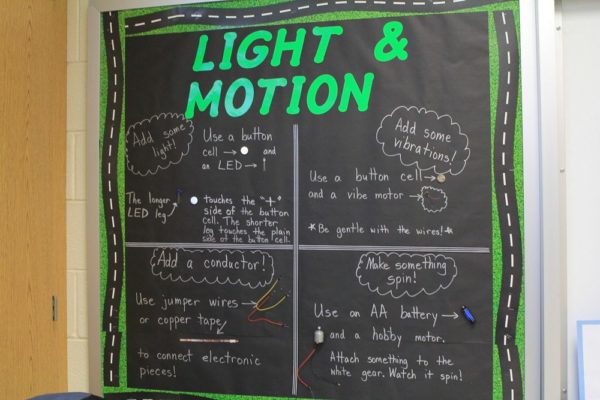 LIGHT &
MOTION
Add some
light!
Use a button
cell → and
an LED →
The longer
LED leg
touches the "+"
side of the button
cell. The shorter
leg touches the plain
side of the button cell.
Add some
vibrations!
Use a button cell →
and a vibe motor →
*Be gentle with the wires!*
Add a conductor!
Use jumper wires →
or copper tape
to connect electronic
pieces!
Make something
spin!
Use an AA battery →
and a hobby motor.
Attach something to the
white gear. Watch it spin!